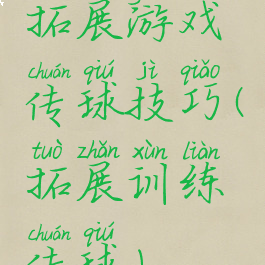 拓展游戏
chuán qiú jì qiǎo
传球技巧(
tuò zhǎn xùn liàn
拓展训练
chuán qiú
传球)